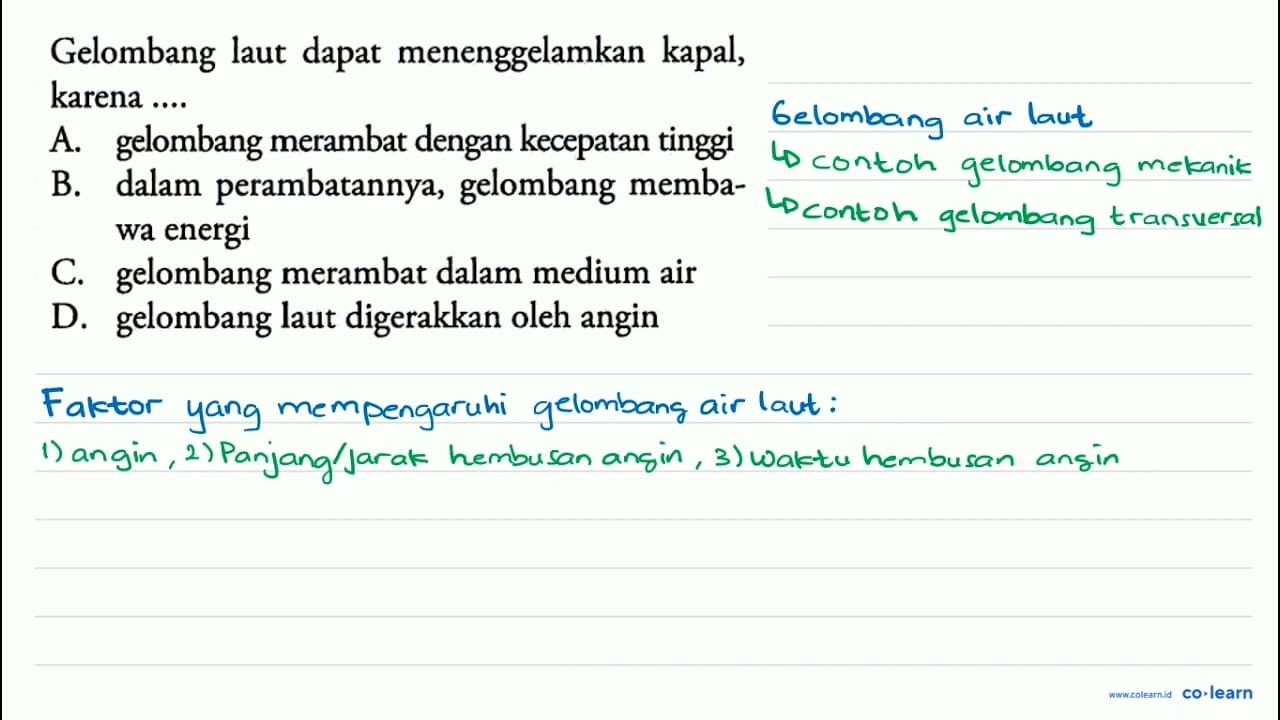 Gelombang laut dapat menenggelamkan kapal,
karena ....
A. gelombang merambat dengan kecepatan tinggi
B. dalam perambatannya, gelombang memba-
wa energi
C. gelombang merambat dalam medium air
D. gelombang laut digerakkan oleh angin
Gelombang air laut
↳ contoh gelombang mekanik
↳ contoh gelombang transversal
Faktor yang mempengaruhi gelombang air laut :
1) angin, 2) Panjang/Jarak hembusan angin, 3) waktu hembusan angin
www.colearn.id co·learn